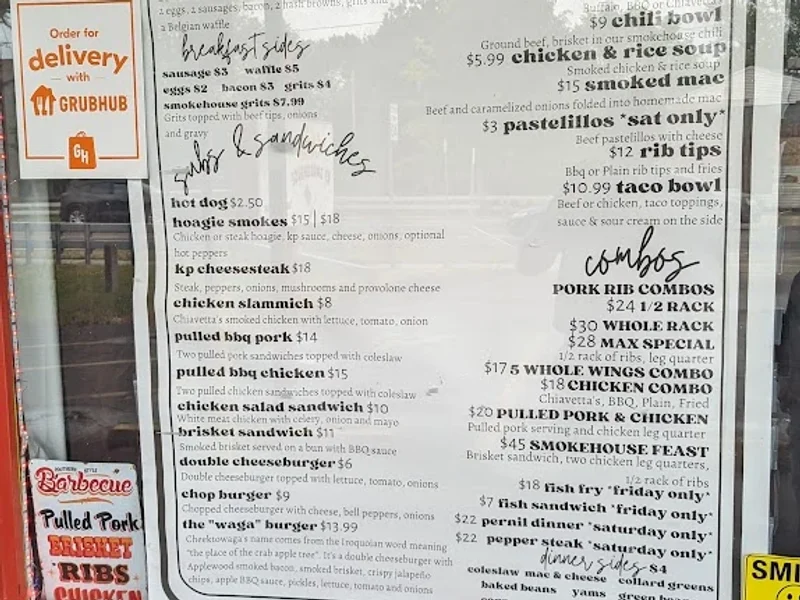 Order for
delivery
with
GRUBHUB
GH
2 eggs, 2 sausages, bacon, 2 hash browns, grits and
a Belgian waffle
breakfast sides
sausage $3 waffle $5
eggs $2 bacon $3 grits $4
smokehouse grits $7.99
Grits topped with beef tips, onions
and gravy
subs & sandwiches
hot dog $2.50
hoagie smokes $15 | $18
Chicken or steak hoagie, kp sauce, cheese, onions, optional
hot peppers
kp cheesesteak $18
Steak, peppers, onions, mushrooms and provolone cheese
chicken slammich $8
Chiavetta's smoked chicken with lettuce, tomato, onion
pulled bbq pork $14
Two pulled pork sandwiches topped with coleslaw
pulled bbq chicken $15
Two pulled chicken sandwiches topped with coleslaw
chicken salad sandwich $10
White meat chicken with celery, onion and mayo
brisket sandwich $11
Smoked brisket served on a bun with BBQ sauce
double cheeseburger $6
Double cheeseburger topped with lettuce, tomato, onions
chop burger $9
Chopped cheeseburger with cheese, bell peppers, onions
the "waga" burger $13.99
Cheektowaga's name comes from the Iroquoian word meaning
"the place of the crab apple tree". It's a double cheeseburger with
Applewood smoked bacon, smoked brisket, crispy jalapeño
chips, apple BBQ sauce, pickles, lettuce, tomato and onions
Buffalo, BBQ or Chiavetta's
$9 chili bowl
Ground beef, brisket in our smokehouse chili
$5.99 chicken & rice soup
Smoked chicken & rice soup
$15 smoked mac
Beef and caramelized onions folded into homemade mac
$3 pastelillos *sat only*
Beef pastelillos with cheese
$12 rib tips
Bbq or Plain rib tips and fries
$10.99 taco bowl
Beef or chicken, taco toppings,
sauce & sour cream on the side
combos
PORK RIB COMBOS
$24 1/2 RACK
$30 WHOLE RACK
$28 MAX SPECIAL
1/2 rack of ribs, leg quarter
$17 5 WHOLE WINGS COMBO
$18 CHICKEN COMBO
Chiavetta's, BBQ, Plain, Fried
$20 PULLED PORK & CHICKEN
Pulled pork serving and chicken leg quarter
$45 SMOKEHOUSE FEAST
Brisket sandwich, two chicken leg quarters,
1/2 rack of ribs
$18 fish fry *friday only*
$7 fish sandwich *friday only*
$22 pernil dinner *saturday only*
$22 pepper steak *saturday only*
dinner sides $4
coleslaw mac & cheese collard greens
baked beans yams green
SOUTHERN STYLE
Barbecue
Pulled Pork
BRISKET
RIBS
CHICKEN
SMI